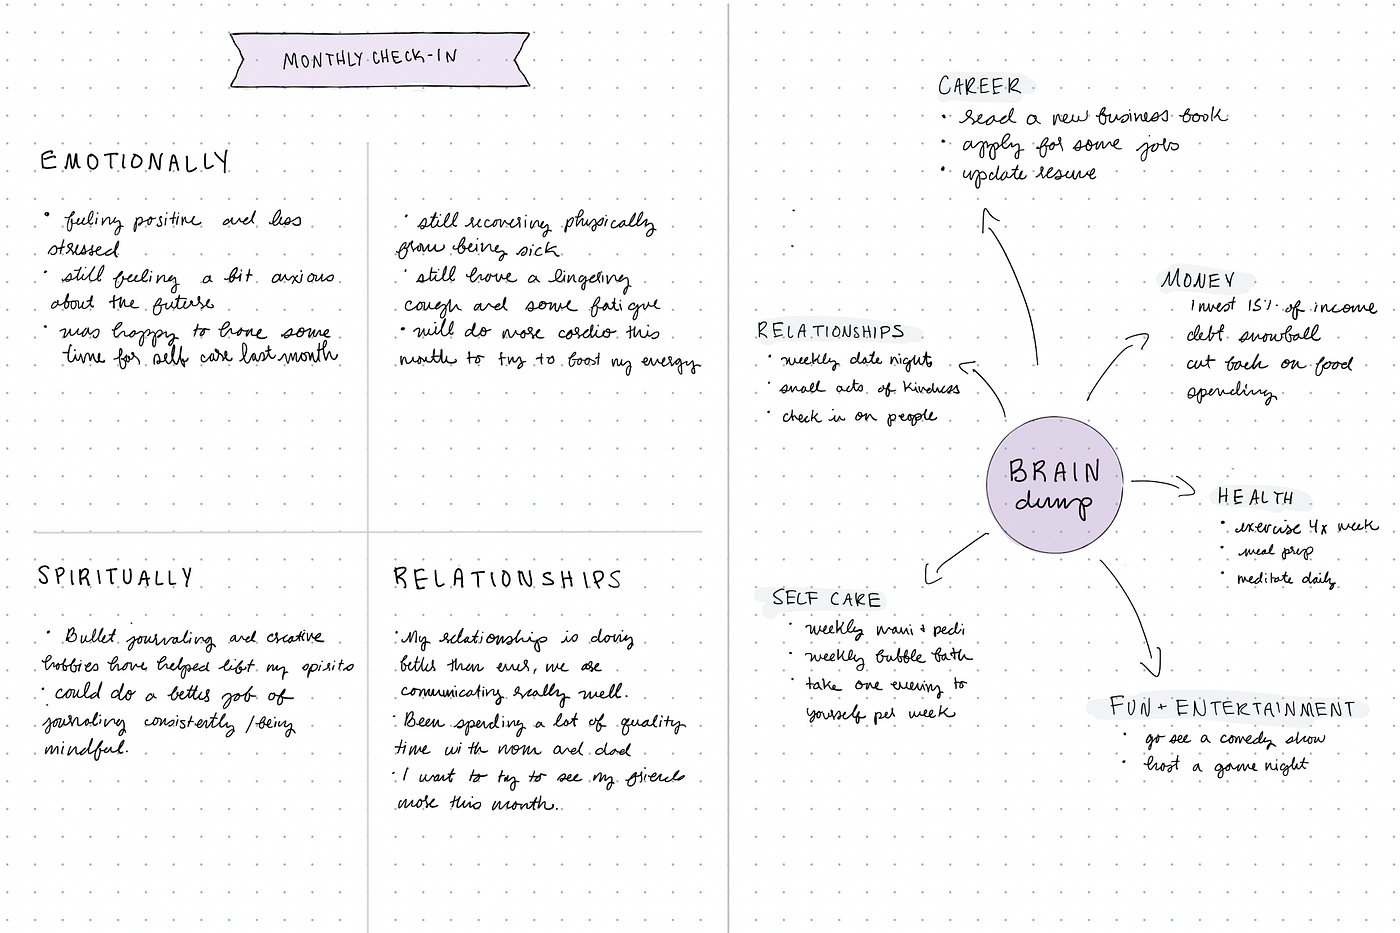 MONTHLY CHECK-IN
EMOTIONALLY
• feeling positive and less
stressed
• still feeling a bit anxious
about the future
• was happy to have some
time for self care last month
• still recovering physically
from being sick
• still have a lingering
cough and some fatigue
• will do more cardio this
month to try to boost my energy
SPIRITUALLY
• Bullet journaling and creative
hobbies have helped lift my spirits
• could do a better job of
journaling consistently / being
mindful.
RELATIONSHIPS
• My relationship is doing
better than ever, we are
communicating really well.
• Been spending a lot of quality
time with mom and dad
• I want to try to see my friends
more this month.
CAREER
• read a new business book
• apply for some jobs
• update resume
MONEY
Invest 15% of income
debt snowball
cut back on food
spending
RELATIONSHIPS
• weekly date night
• small acts of kindness
• check in on people
BRAIN
dump
HEALTH
• exercise 4x week
• meal prep
• meditate daily
SELF CARE
• weekly mani + pedi
• weekly bubble bath
• take one evening to
yourself per week
FUN + ENTERTAINMENT
• go see a comedy show
• host a game night